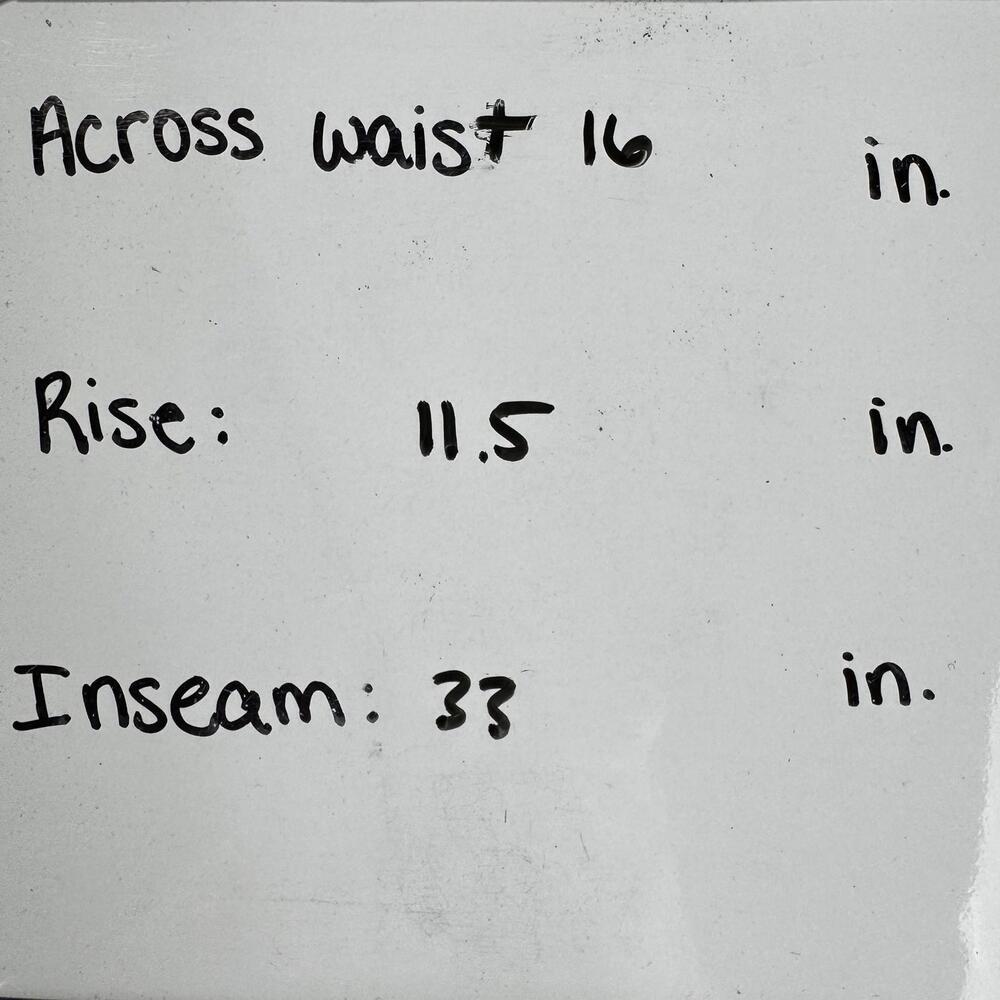 Across waist 16 in.
Rise: 11.5 in.
Inseam: 33 in.